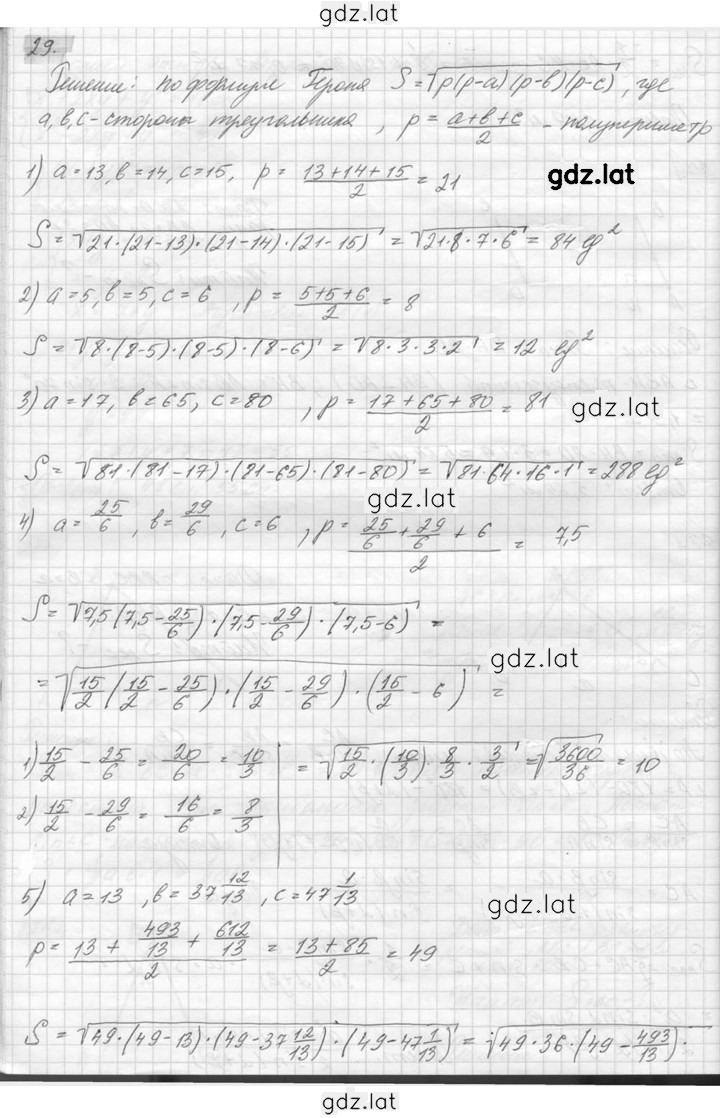 gdz.lat
29.
Решение: по формуле Герона S = √p(p-a)(p-в)(p-c), где
a,в,с-стороны треугольника, p = a+в+c/2 - полупериметр
1) a=13, в=14, c=15, p = 13+14+15/2 = 21
gdz.lat
S = √21·(21-13)·(21-14)·(21-15) = √21·8·7·6 = 84 ед²
2) a=5, в=5, c=6, p = 5+5+6/2 = 8
S = √8·(8-5)·(8-5)·(8-6) = √8·3·3·2 = 12 ед²
3) a=17, в=65, c=80, p = 17+65+80/2 = 81
gdz.lat
S = √81·(81-17)·(81-65)·(81-80) = √81·64·16·1 = 288 ед²
gdz.lat
4) a = 25/6, в = 29/6, c=6, p = 25/6 + 29/6 + 6/2 = 7,5
S = √7,5(7,5-25/6)·(7,5-29/6)·(7,5-6) =
gdz.lat
= √15/2(15/2 - 25/6)·(15/2 - 29/6)·(15/2 - 6) =
1) 15/2 - 25/6 = 20/6 = 10/3 = √15/2·(10/3)·8/3·3/2 = √3600/36 = 10
2) 15/2 - 29/6 = 16/6 = 8/3
5) a=13, в=37 12/13, c=47 1/13
gdz.lat
p = 13 + 493/13 + 612/13/2 = 13+85/2 = 49
S = √49·(49-13)·(49-37 12/13)·(49-47 1/13) = √49·36·(49-493/13)·
gdz.lat